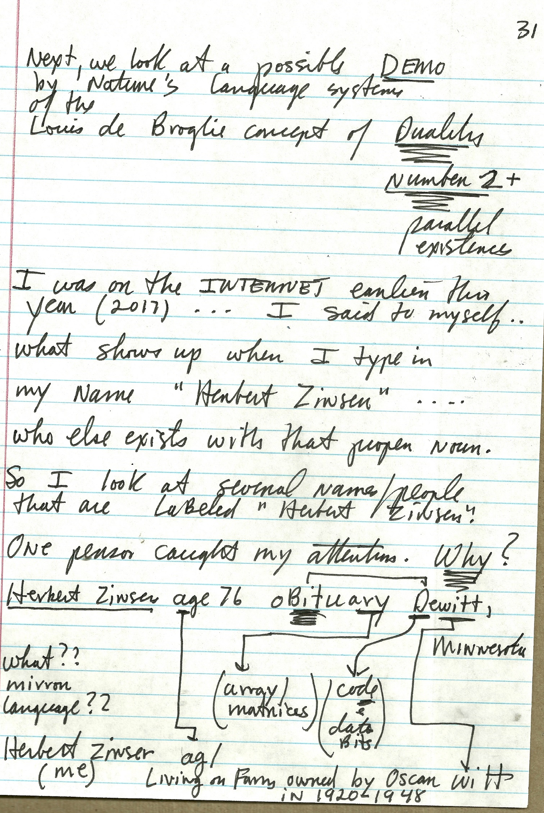 31
Next, we look at a possible DEMO
by Nature's Language systems
of the
Louis de Broglie concept of Duality
Number 2+
parallel
existences
I was on the INTERNET earlier this
year (2017) .... I said to myself..
what shows up when I type in
my Name "Herbert Zinser" ....
who else exists with that proper noun.
So I look at several names/people
that are LaBeled "Herbert Zinser".
One person caught my attention. Why?
Herbert Zinser age 76 oBituary Dewitt,
Minnesota
what??
mirror
language??
(array/
matrices)
(code
&
data
Bits)
Herbert Zinser
(me)
ag/
Living on Farm owned by Oscar Witt
IN 1920-1948